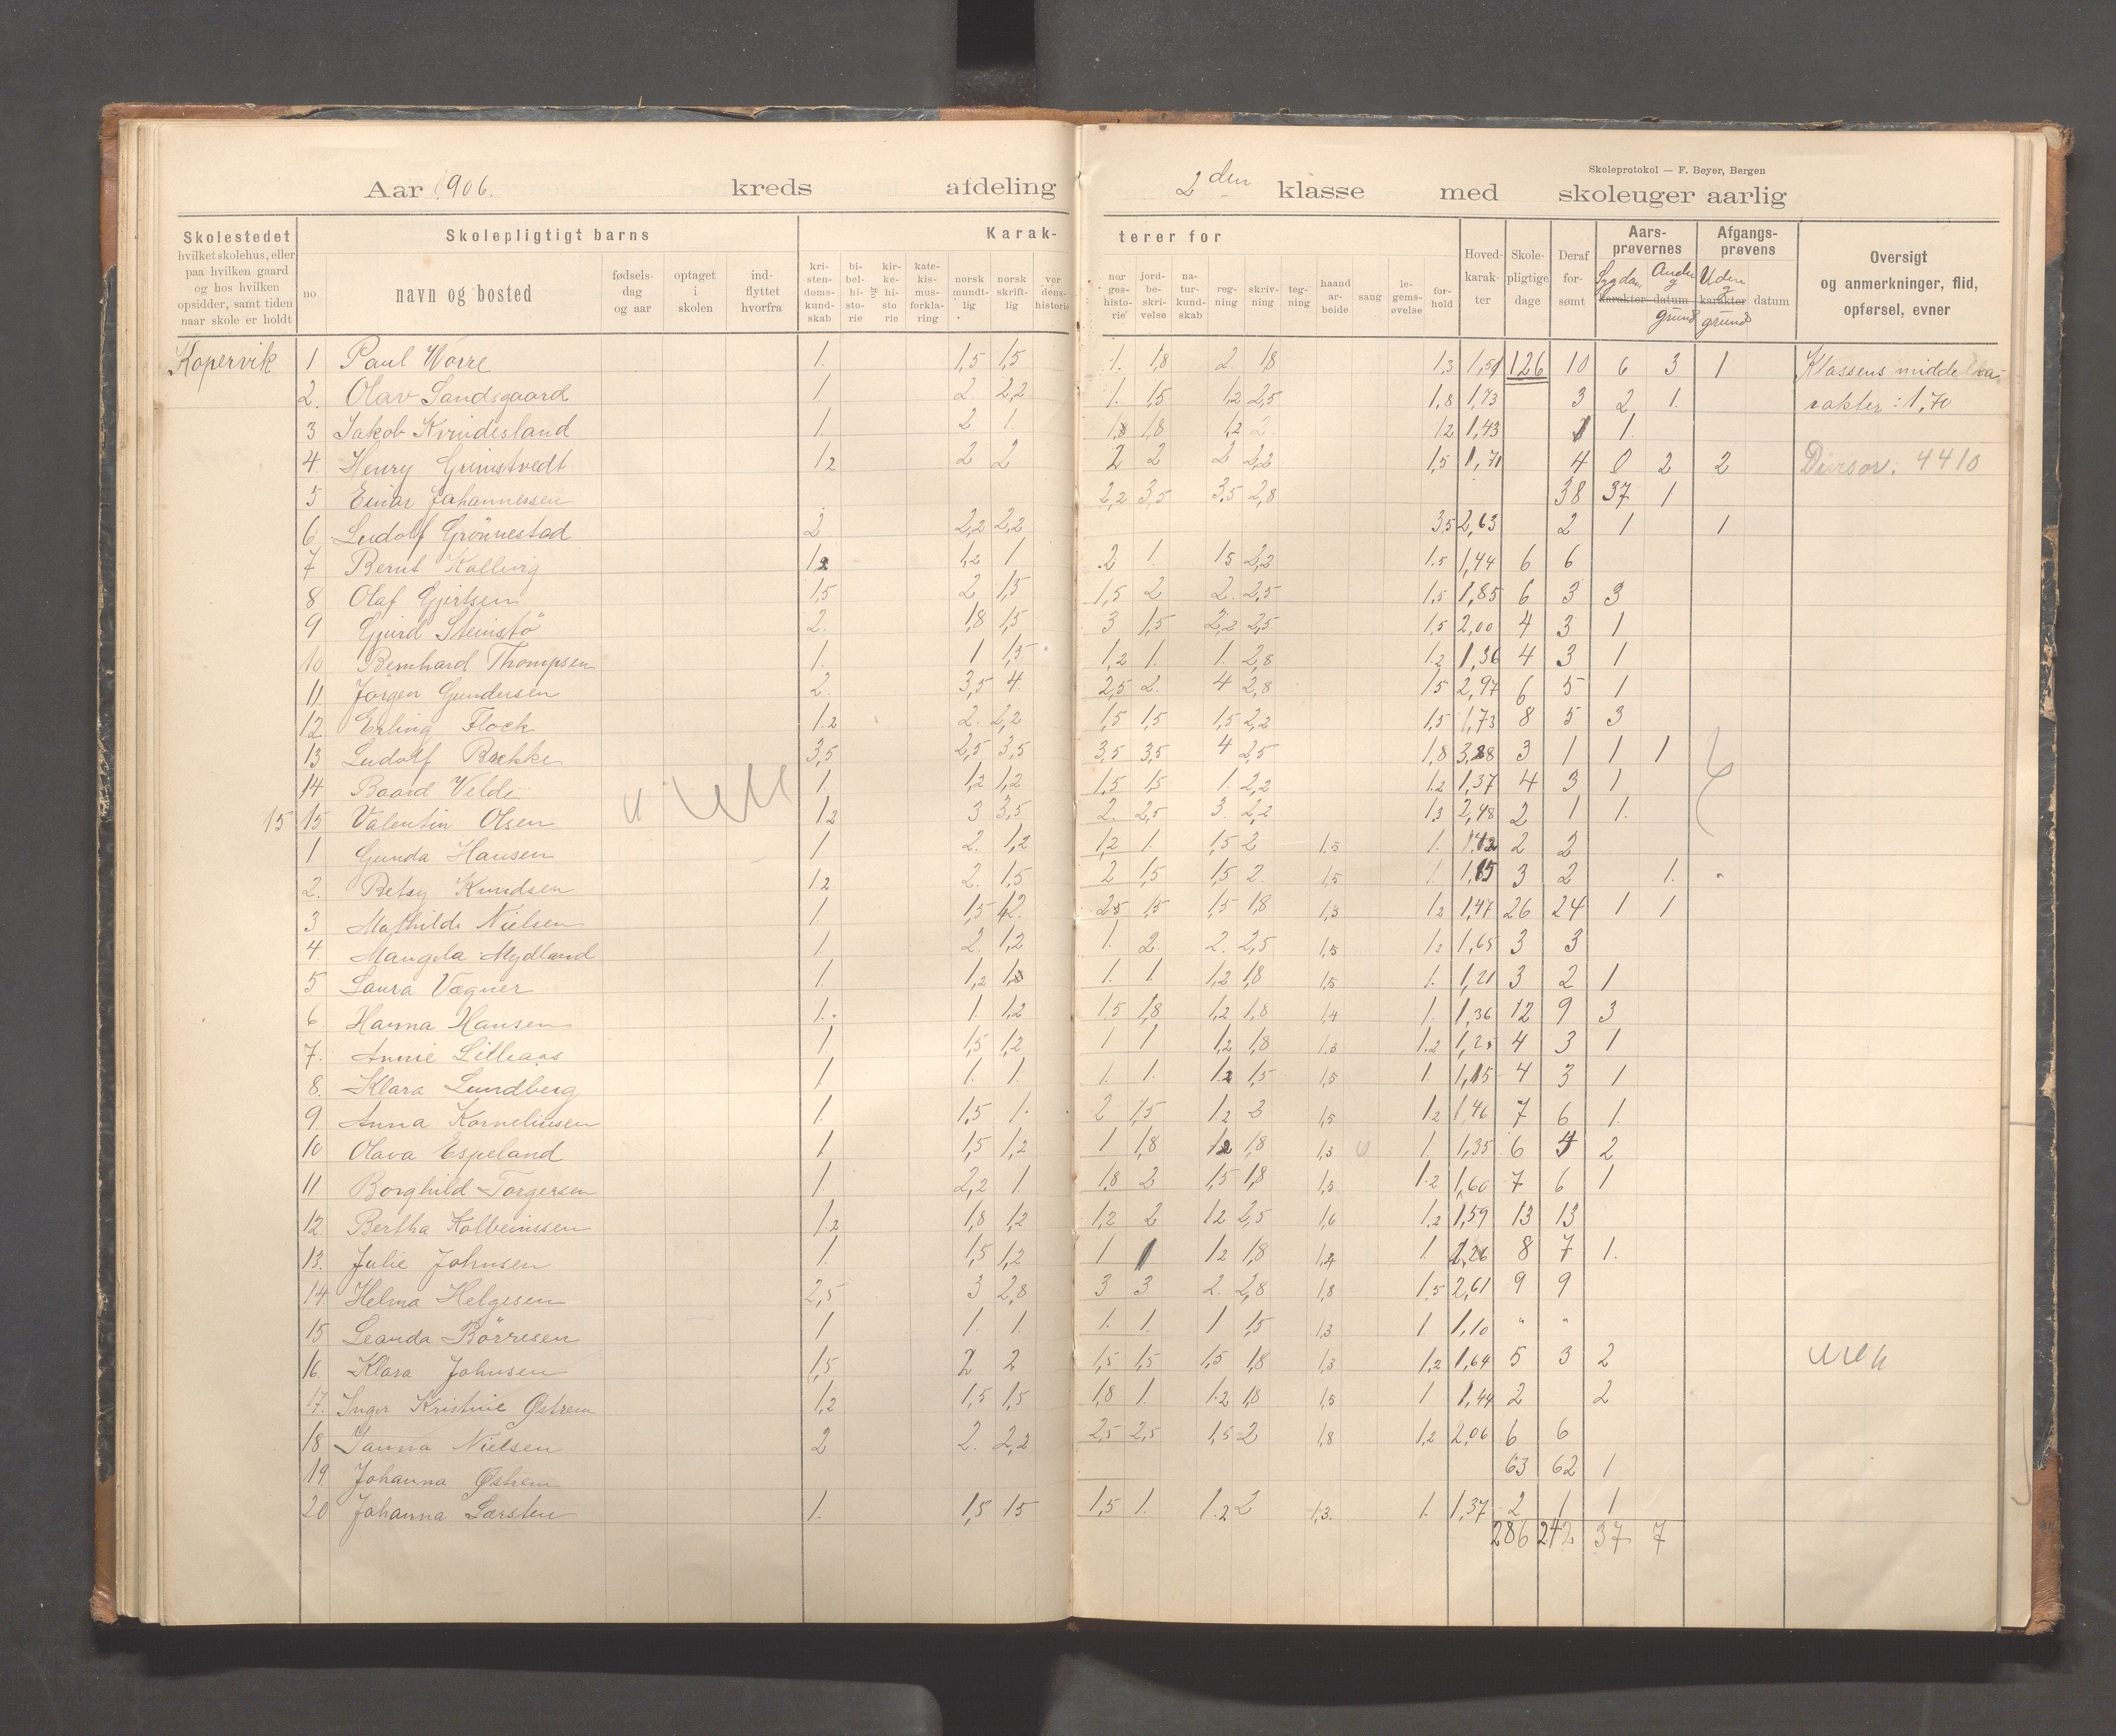 Skoleprotokol — F. Beyer, Bergen
Aar 1906. kreds afdeling 2den klasse med skoleuger aarlig
Skolestedet hvilket skolehus, eller paa hvilken gaard og hos hvilken opsidder, samt tiden naar skole er holdt
Skolepligtigt barns
no navn og bosted fødsels- dag og aar optaget i skolen ind- flyttet hvorfra
Karak- terer for
kri- sten- doms- kund- skab bi- bel- hi- sto- rie og kir- ke- hi- sto rie kate- kis- mus- forkla- ring norsk mundt- lig norsk skrift- lig ver dens- historie
nor ges- histo- rie jord- be- skri- velse na- tur- kund- skab reg- ning skriv- ning teg- ning haand ar- beide sang le- gems- øvelse for- hold
Hoved- karak- ter Skole- pligtige dage Deraf for- sømt
Aars- prøvernes karakter datum Afgangs- prøvens karakter datum
Sygdom Anden grund Uden grund
Oversigt og anmerkninger, flid, opførsel, evner
Kopervik 1 Paul Worre 1. 1,5 1,5 1. 1,8 2. 1,8 1,3 1,51 126 10 6 3 1 Klassens middelka-
2. Olav Sandsgaard 1 2. 2,2 1. 1,5 1,2 2,5 1,8 1,73 3 2 1. rakter: 1,70
3 Jakob Kvindesland 1. 2 1. 1,8 1,8 1,2 2. 1,2 1,43 1 1.
4. Henry Grimstvedt 1,2 2 2 2 2 2 2,2 1,5 1,71 4 0 2 2 Divisor: 4410
5 Einar Johannessen 2,2 3,5 3,5 2,8 38 37 1
6. Ludolf Grönnestad 2 2,2 2,2 3,5 2,63 2 1 1
7 Bernt Kallevig 1,2 1,2 1 2 1. 1,5 2,2 1,5 1,44 6 6
8 Olaf Gjertsen 1,5 2 1,5 1,5 2 2. 2,5 1,5 1,85 6 3 3
9 Gjurd Steinstö 2. 1,8 1,5 3 1,5 2,2 2,5 1,5 2,00 4 3 1
10 Bernhard Thompsen 1. 1 1,5 1,2 1. 1. 2,8 1,2 1,36 4 3 1
11 Jörgen Gundersen 2. 3,5 4. 2,5 2. 4 2,8 1,5 2,97 6 5 1
12. Erling Flock 1,2 2. 2,2 1,5 1,5 1,5 2,2 1,5 1,73 8 5 3
13 Ludolf Brekke 3,5 2,5 3,5 3,5 3,5 4 2,5 1,8 3 1 1 1
14 Baard Velde 1. 1,2 1,2 1,5 1,5 1. 2,2 1,2 1,37 4 3 1
15 15 Valentin Olsen 1,2 3 3,5 2. 2,5 3. 2,2 1,3 2,48 2 1 1.
1 Gunda Hansen 1 2. 1,2 1,2 1. 1,5 2 1,5 1. 2 2
2. Betsy Knudsen 1,2 2. 1,5 2 1,5 1,5 2. 1,5 1. 3 2 1.
3 Mathilde Nielsen 1 1,5 1,2. 2,5 1,5 1,5 1,8 1,3 1,2 1,47 26 24 1 1
4. Mangela Mydland 1. 2. 1,2 1. 2. 2. 2,5 1,5 1,2 1,65 3 3
5 Laura Vægner 1. 1,2 1. 1 1,2 1,8 1,5 1. 1,21 3 2 1
6. Hanna Hansen 1. 1. 1,2 1,5 1,8 1,2 1,8 1,4 1. 1,36 12 9 3
7. Annie Lilleaas 1 1,5 1,2 1 1 1,2 1,8 1,3 1,2 1,25 4 3 1
8. Klara Lundberg 1 1. 1. 1. 1. 1,2 1,5 1,5 1. 1,15 4 3 1
9. Anna Korneliusen 1. 1,5 1. 2 1,5 1,2 3 1,5 1,2 1,46 7 6 1.
10 Olava Espeland 1 1,5 1,2 1 1,8 1,2 1,8 1,3 1 1,35 6 4 2
11. Borghild Torgersen 1. 2,2 1. 1,8 2 1,5 1,8 1,5 1,2 1,60 7 6 1
12. Bertha Kolbeinssen 1,2 1,8 1,2 1,2 2 1,2 2,5 1,6 1,2 1,59 13 13
13. Julie Johnsen 1. 1,5 1,2 1 1 1,2 1,8 1,4 1. 1,26 8 7 1.
14. Helma Helgesen 2,5 3 2,8 3 3 2. 2,8 1,8 1,5 2,61 9 9
15 Leanda Börresen 1 1. 1. 1. 1. 1 1,5 1,3 1 1,10 " "
16. Klara Johnsen 1,5 2 2 1,5 1,5 1,5 1,8 1,3 1,2 1,64 5 3 2
17. Inger Kristine Østrem 1,2 1,5 1,5 1,8 1. 1,2 1,8 1,5 1 1,44 2 2
18 Janna Nielsen 2 2. 2,2 2,5 2,5 1,5 2 1,8 1,2 2,06 6 6
19. Johanna Østrem 63 62 1
20 Johanna Larsten 1. 1,5 1,5 1,5 1. 1,2 2 1,3. 1. 1,37 2 1 1
286 242 37 7